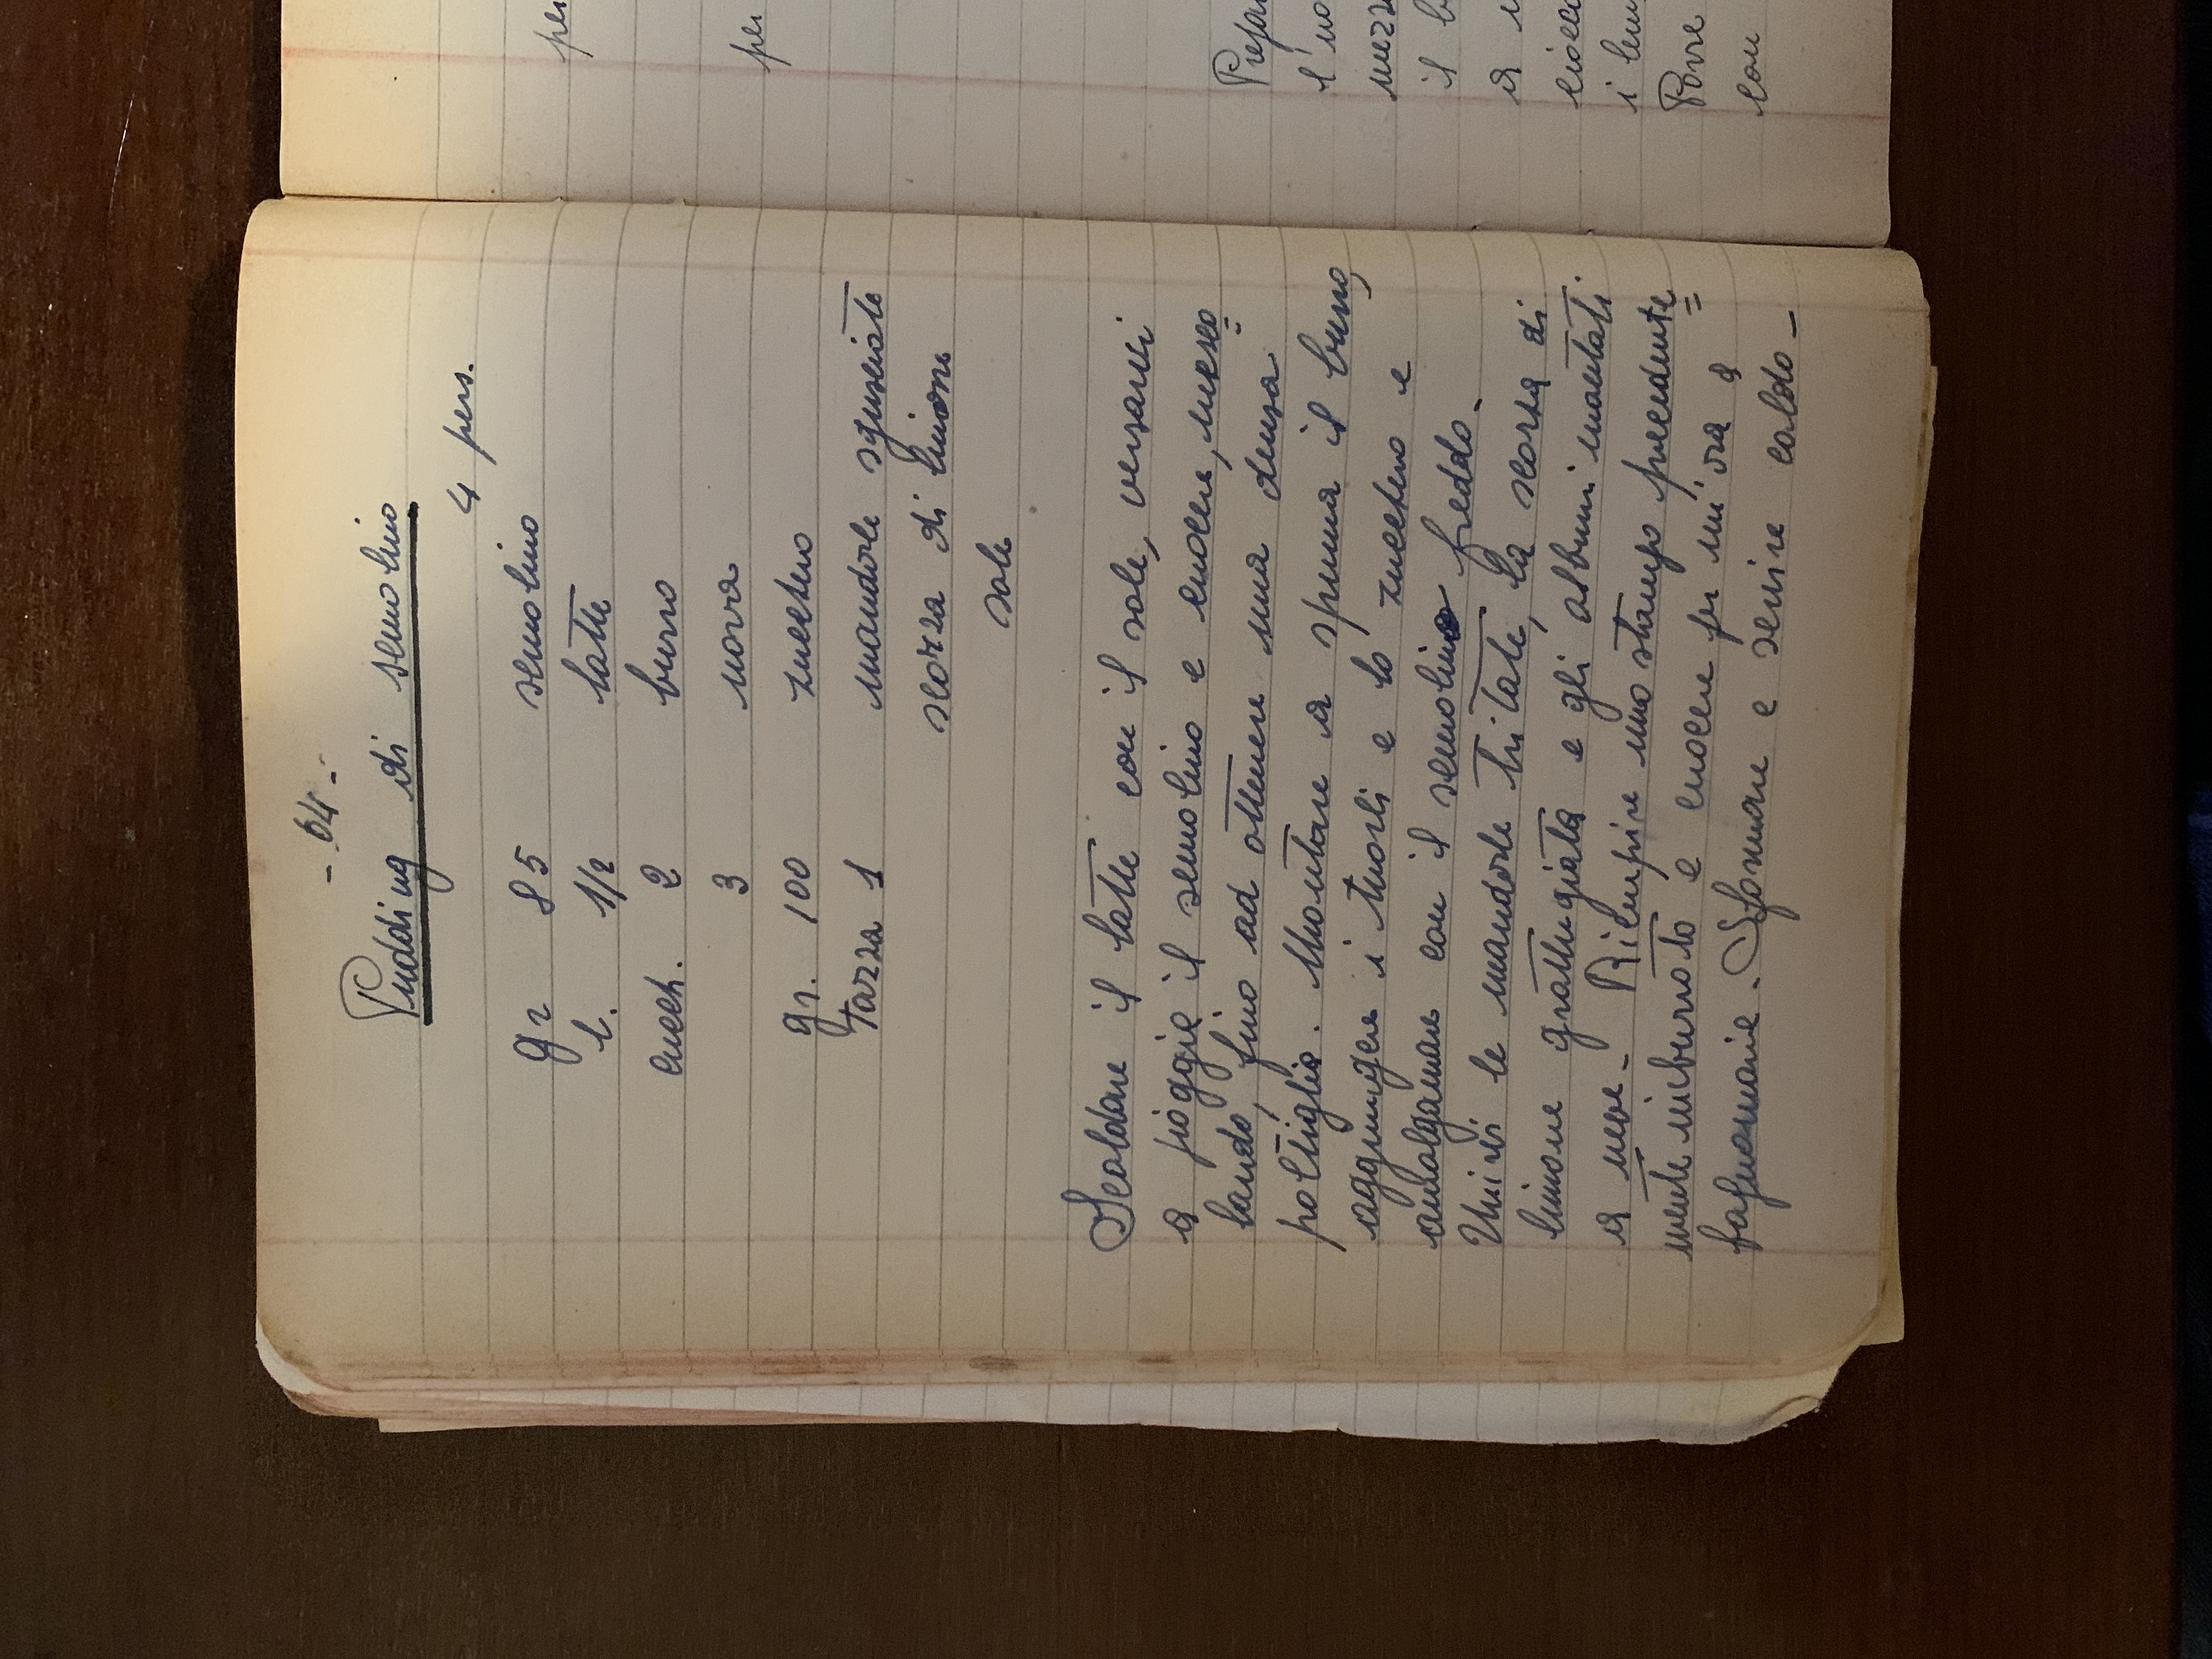 - 64 -
Pudding di semolino
4 pers.
gr 85 semolino
l. 1/2 latte
cucch. 2 burro
3 uova
gr. 100 zucchero
Tazza 1 mandorle sgusciate
scorza di limone
sale
Scaldare il latte con il sale, versarvi
a pioggia il semolino e cuocere, mesco=
lando, fino ad ottenere una densa
poltiglia. Montare a spuma il burro,
aggiungere i tuorli e lo zucchero e
amalgamare con il semolino freddo.
Unirvi le mandorle tritate, la scorza di
limone grattugiata e gli albumi montati
a neve - Riempire uno stampo precedente=
mente imburrato e cuocere per un'ora a
bagnomaria. Sformare e servire caldo -
per
Prepar
l'uo
mezz
il b
a
i
Porre
con